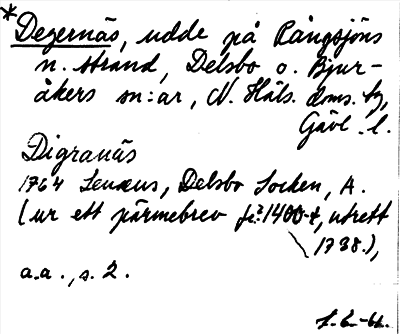 *Degernäs, udde på Rångsjöns
n. strand, Delsbo o. Bjur-
åkers sn:ar, N. Häls. doms. tg,
Gävl. l.
Digranäs
1764 Lenæus, Delsbo Socken, A.
(ur ett pärmebrev fr. 1400-t, utrett
1738.),
a.a., s. 2.